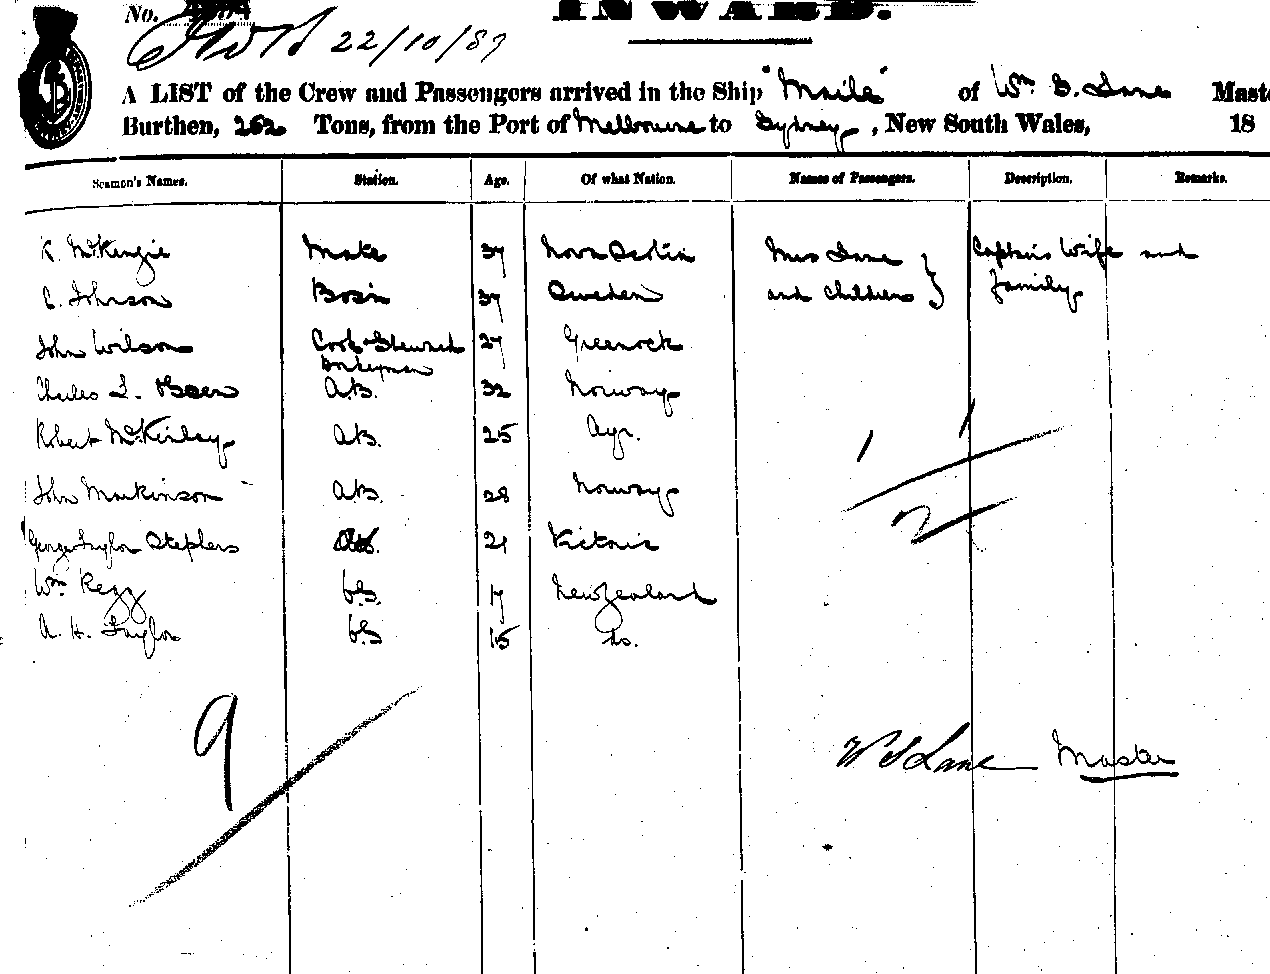 No.
INWARD.
22/10/87
A LIST of the Crew and Passengers arrived in the Ship "Maile" of Wm S. Lane Maste
Burthen, 262 Tons, from the Port of Melbourne to Sydney, New South Wales, 18
Seamen's Names. Station. Age. Of what Nation. Names of Passengers. Description. Remarks.
K. McKenzie Mate 37 Nova Scotia Mrs Lane } Captain's Wife and
C. Johnson Bosn 37 Sweden and children } family
John Wilson Cook & Steward 27 Greenock
Donkeyman
Charles L. Olsen A.B. 32 Norway
Robert McKinlay A.B. 25 Ayr.
John Markinson A.B. 28 Norway
George Taylor Stephens A.B. 21 Victoria
Wm Regg O.S. 17 New Zealand
A. H. Taylor O.S 15 Do.
1 1
2
9
W S Lane Master